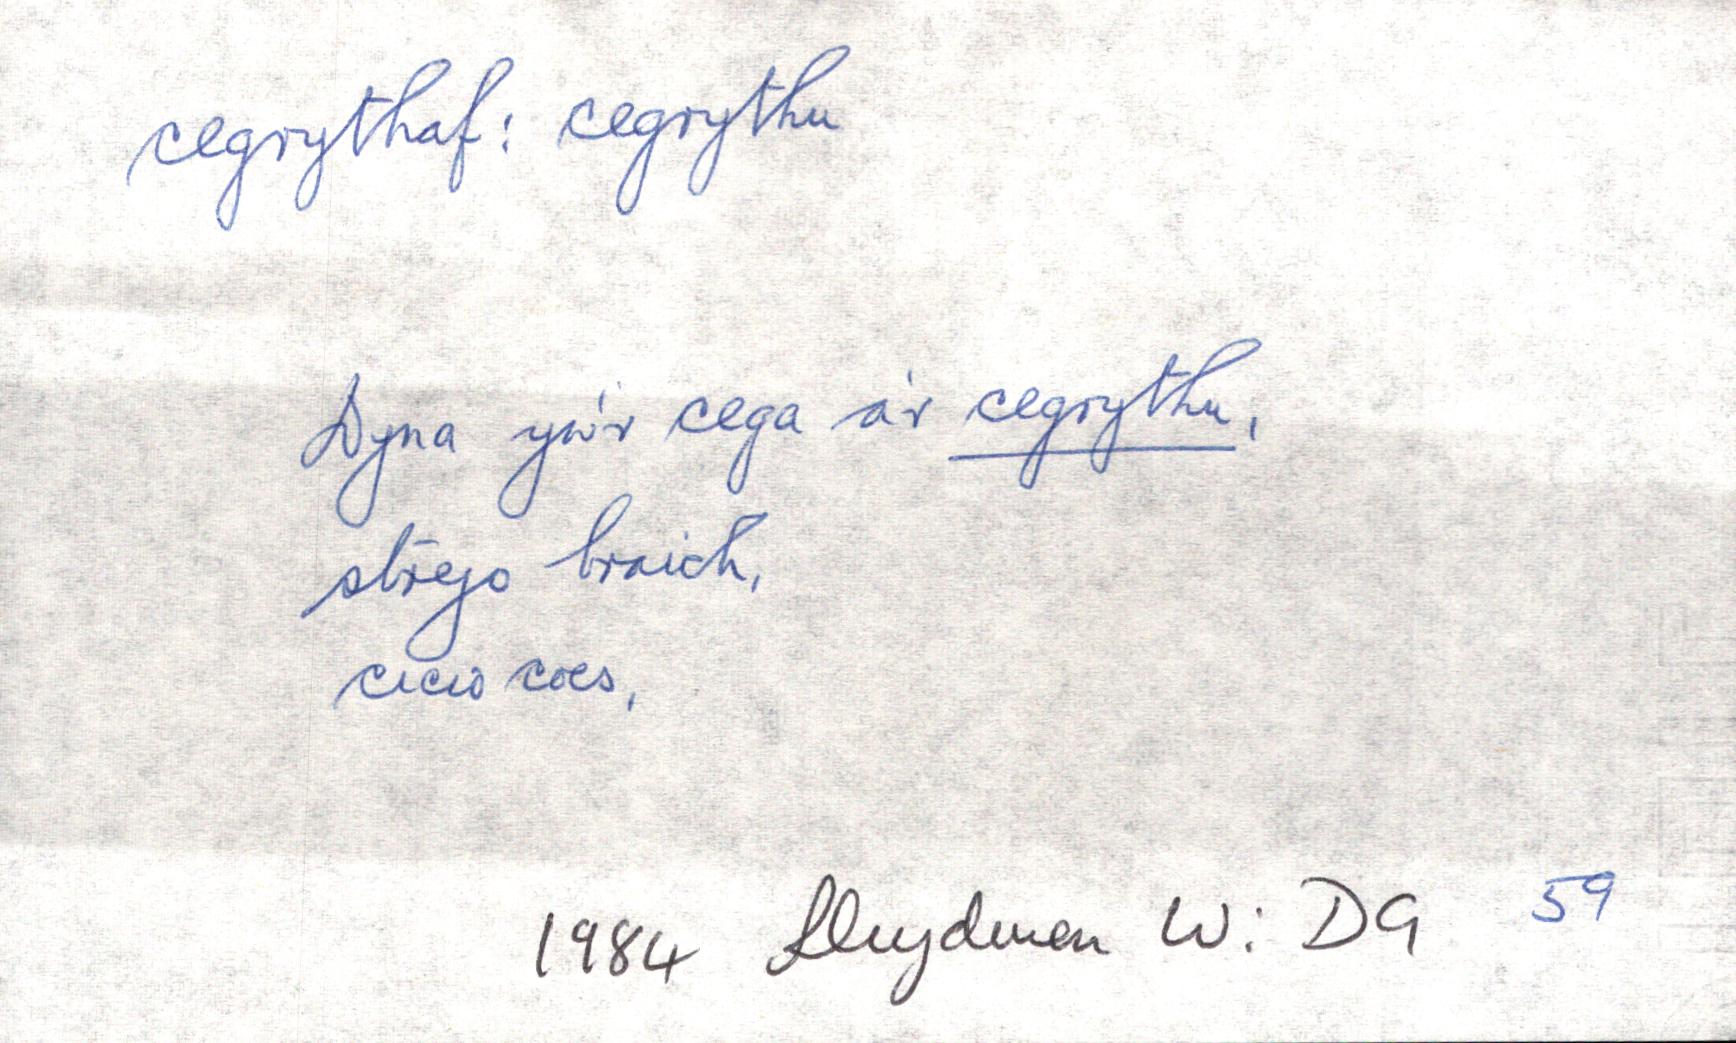 cegrythaf: cegrythu
Dyna yw'r cega a'r cegrythu,
strejo braich,
cicio coes,
1984 Llwydwen W: DG 59